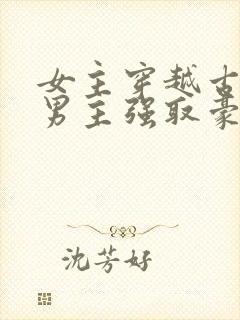 女主穿越古
男主强取豪
沈芳好